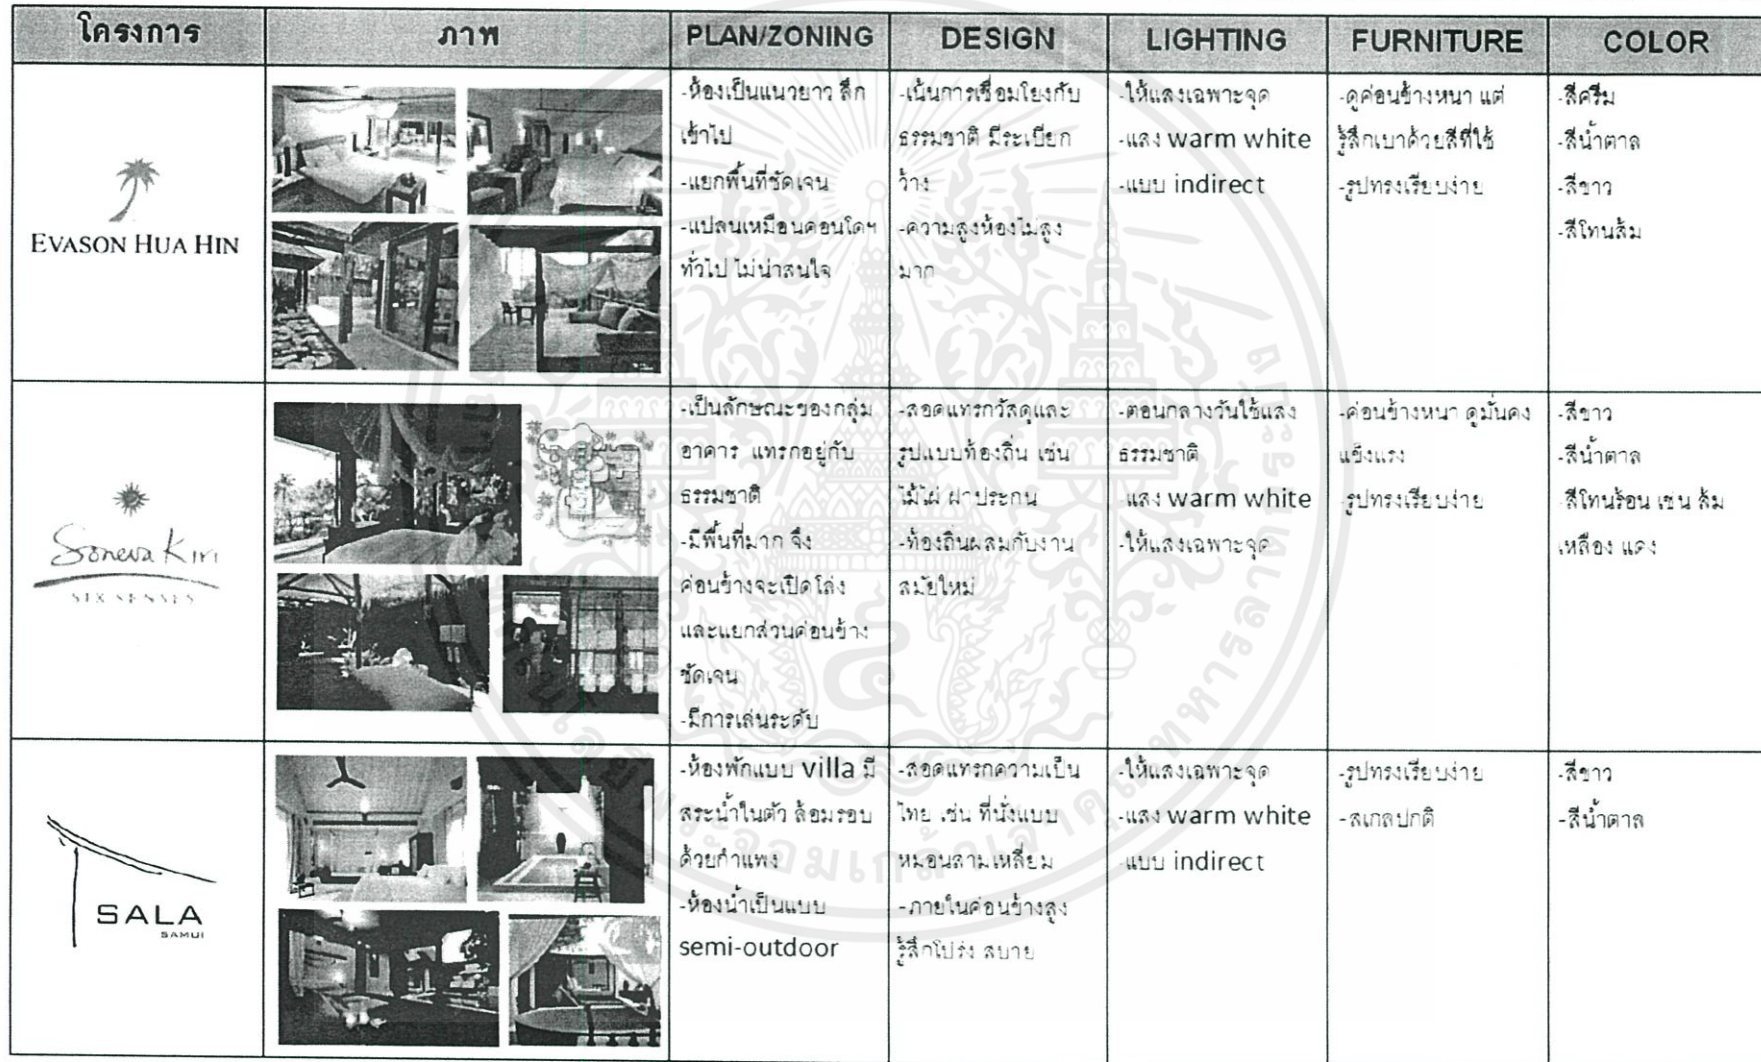 โครงการ
ภาพ
PLAN/ZONING
DESIGN
LIGHTING
FURNITURE
COLOR
EVASON HUA HIN
-ห้องเป็นแนวยาว ลึก
เข้าไป
-แยกพื้นที่ชัดเจน
-แปลนเหมือนคอนโดฯ
ทั่วไป ไม่น่าสนใจ
-เน้นการเชื่อมโยงกับ
ธรรมชาติ มีระเบียก
ว้าง
-ความสูงห้องไม่สูง
มาก
-ให้แสงเฉพาะจุด
-แสง warm white
-แบบ indirect
-ดูค่อนข้างหนา แต่
รู้สึกเบาด้วยสีที่ใช้
-รูปทรงเรียบง่าย
-สีครีม
-สีน้ำตาล
-สีขาว
-สีโทนส้ม
Soneva Kiri
SIX SENSES
-เป็นลักษณะของกลุ่ม
อาคาร แทรกอยู่กับ
ธรรมชาติ
-มีพื้นที่มาก จึง
ค่อนข้างจะเปิดโล่ง
และแยกส่วนค่อนข้าง
ชัดเจน
-มีการเล่นระดับ
-สอดแทรกวัสดุและ
รูปแบบท้องถิ่น เช่น
ไม้ไผ่ ฝาประกน
-ท้องถิ่นผสมกับงาน
สมัยใหม่
-ตอนกลางวันใช้แสง
ธรรมชาติ
-แสง warm white
-ให้แสงเฉพาะจุด
-ค่อนข้างหนา ดูมั่นคง
แข็งแรง
-รูปทรงเรียบง่าย
-สีขาว
-สีน้ำตาล
-สีโทนร้อน เช่น ส้ม
เหลือง แดง
SALA
SAMUI
-ห้องพักแบบ villa มี
สระน้ำในตัว ล้อมรอบ
ด้วยกำแพง
-ห้องน้ำเป็นแบบ
semi-outdoor
-สอดแทรกความเป็น
ไทย เช่น ที่นั่งแบบ
หมอนสามเหลี่ยม
-ภายในค่อนข้างสูง
รู้สึกโปร่ง สบาย
-ให้แสงเฉพาะจุด
-แสง warm white
-แบบ indirect
-รูปทรงเรียบง่าย
-สเกลปกติ
-สีขาว
-สีน้ำตาล